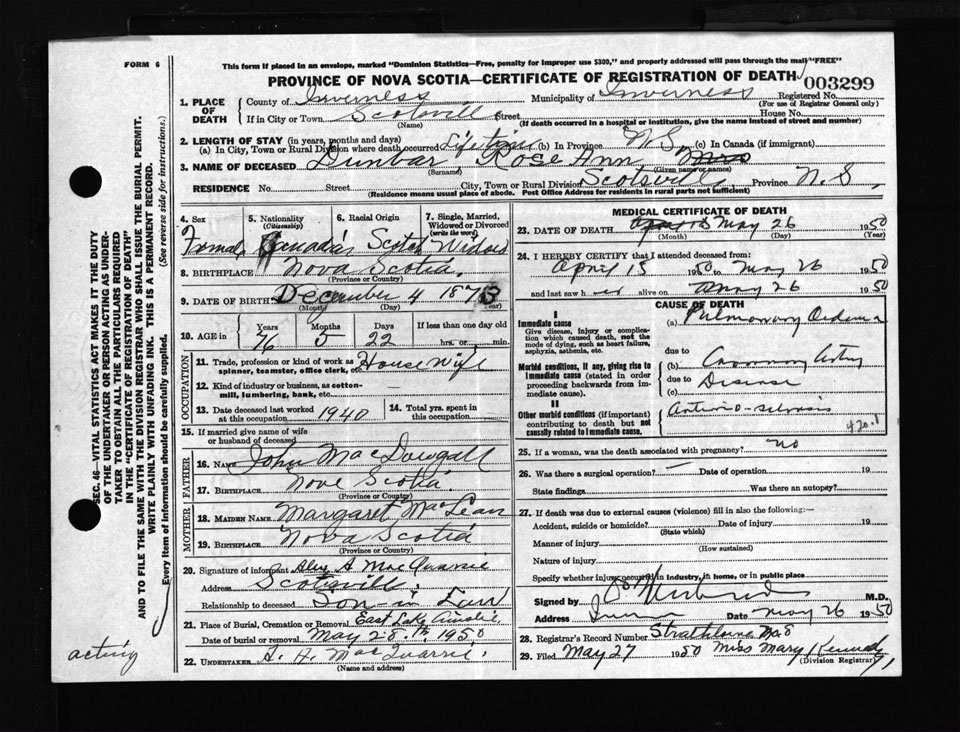 This form if placed in an envelope, marked "Dominion Statistics—Free, penalty for improper use $300," and properly addressed will pass through the mail "FREE"
FORM 6
PROVINCE OF NOVA SCOTIA—CERTIFICATE OF REGISTRATION OF DEATH
003299
1. PLACE OF DEATH
County of Inverness Municipality of Inverness Registered No.
(For use of Registrar General only)
If in City or Town Scotsvill Street House No.
(Name) (If death occurred in a hospital or institution, give the name instead of street and number)
2. LENGTH OF STAY (in years, months and days)
(a) In City, Town or Rural Division where death occurred Lifetime (b) In Province N.S. (c) In Canada (if immigrant)
3. NAME OF DECEASED Dunbar Rose Ann, Mrs
(Surname) (Given name or names)
RESIDENCE No. Street City, Town or Rural Division Scotsvill, Province N.S,
(Residence means usual place of abode. Post Office Address for residents in rural parts not sufficient)
4. Sex
Femal
5. Nationality
(Citizenship)
Canadian
6. Racial Origin
Scotch
7. Single, Married, Widowed or Divorced
(write the word)
Widow
8. BIRTHPLACE Nova Scotia,
(Province or Country)
9. DATE OF BIRTH December 4 1873
(Month) (Day) (Year)
10. AGE in
Years Months Days If less than one day old
76 5 22 hrs. or min.
OCCUPATION
11. Trade, profession or kind of work as spinner, teamster, office clerk, etc. House Wife
12. Kind of industry or business, as cotton-mill, lumbering, bank, etc.
13. Date deceased last worked at this occupation 1940
14. Total yrs. spent in this occupation
15. If married give name of wife or husband of deceased
FATHER
16. NAME John MacDougall
17. BIRTHPLACE Nove Scotia
(Province or Country)
MOTHER
18. MAIDEN NAME Margaret MacLean
19. BIRTHPLACE Nova Scotia
(Province or Country)
20. Signature of informant Alex A MacQuarrie
Address Scotsvill
Relationship to deceased Son-in Law
21. Place of Burial, Cremation or Removal East Lake Ainslie
Date of burial or removal May 28th 1950
22. UNDERTAKER A. H. MacQuarrie.
(Name and address)
MEDICAL CERTIFICATE OF DEATH
23. DATE OF DEATH May 26 1950
(Month) (Day) (Year)
24. I HEREBY CERTIFY that I attended deceased from:
April 15 1950 to May 26 1950
and last saw h er alive on May 26 1950
CAUSE OF DEATH
I
Immediate cause
Give disease, injury or complication which caused death, not the mode of dying, such as heart failure, asphyxia, asthenia, etc.
(a) Pulmonary Oedema
due to
Morbid conditions, if any, giving rise to immediate cause (stated in order proceeding backwards from immediate cause).
(b) Coronary Artery
due to Disease
(c)
II
Other morbid conditions (if important) contributing to death but not causally related to immediate cause.
Arterio-sclerosis
420.1
25. If a woman, was the death associated with pregnancy? no
26. Was there a surgical operation? — Date of operation 19
State findings Was there an autopsy?
27. If death was due to external causes (violence) fill in also the following:—
Accident, suicide or homicide? Date of injury 19
(State which)
Manner of injury
(How sustained)
Nature of injury
Specify whether injury occurred in industry, in home, or in public place
Signed by M.D.
Address Date May 26 1950
28. Registrar's Record Number Strathlorne No. 8
29. Filed May 27 1950 Miss Mary Kennedy
(Division Registrar)
acting
SEC. 46—VITAL STATISTICS ACT MAKES IT THE DUTY OF THE UNDERTAKER OR PERSON ACTING AS UNDERTAKER TO OBTAIN ALL THE PARTICULARS REQUIRED IN THE "CERTIFICATE OF REGISTRATION OF DEATH" AND TO FILE THE SAME WITH THE DIVISION REGISTRAR WHO SHALL ISSUE THE BURIAL PERMIT.
WRITE PLAINLY WITH UNFADING INK. THIS IS A PERMANENT RECORD.
Every item of information should be carefully supplied. (See reverse side for instructions.)